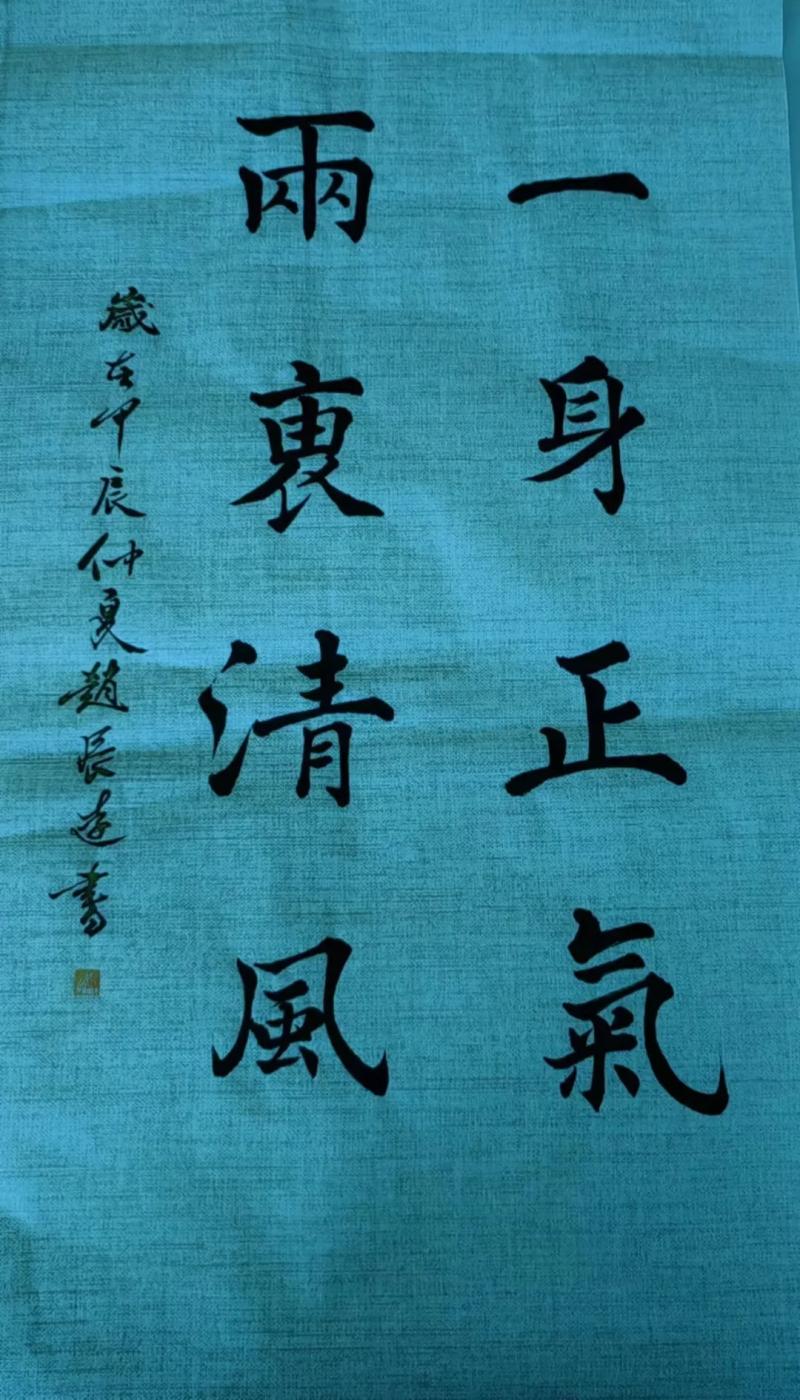 一身正氣
兩袖清風
歲在甲辰仲夏趙辰書